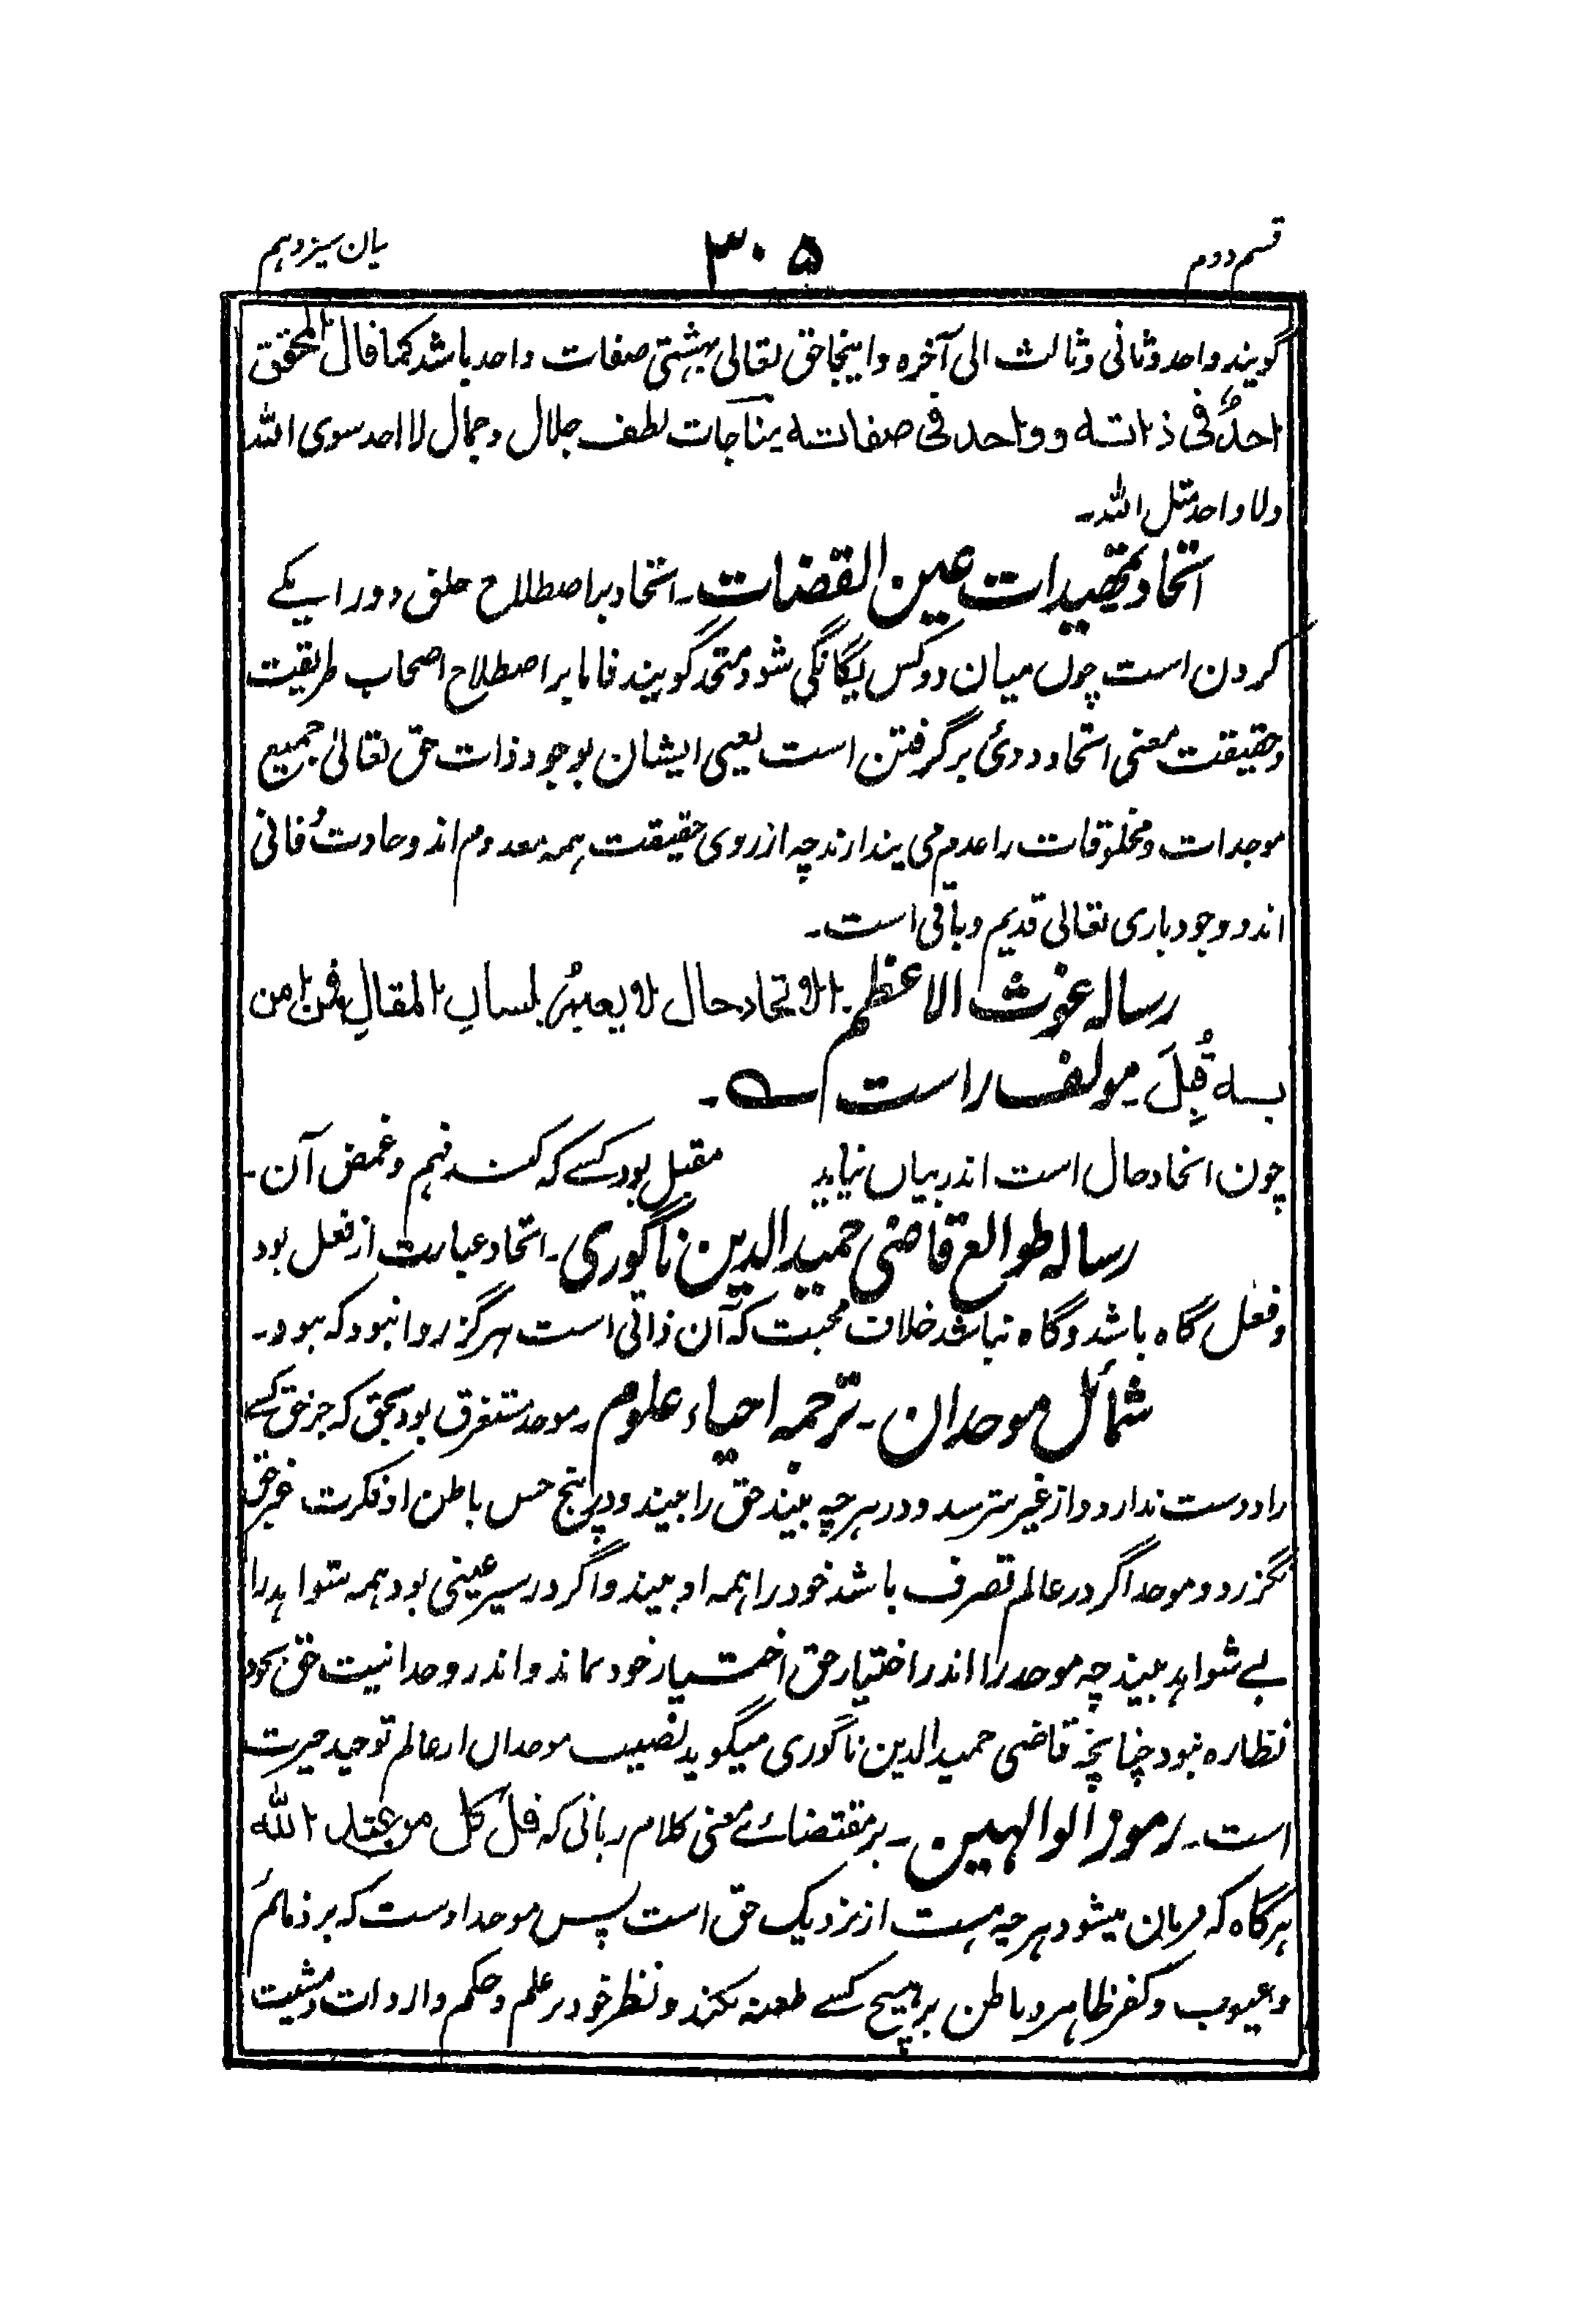 قسم دوم ۳۰۵ بیان سیزدہم
گویند واحد و ثانی و ثالث الی آخرہ و اینجا حق تعالی بہشتی صفات واحد باشد کما قال المحقق
احدٌ فی ذاتہ و واحد فی صفاتہ مناجات لطف جلال و جمال لا احد سوی اللہ
ولا واحد مثل اللہ۔
اتحاد تمہیدات عین القضات۔ اتحاد بر اصطلاح خلق دو را یکے
کردن است چوں میان دو کس یگانگی شود متحد گویند فاما بر اصطلاح اصحاب طریقت
و حقیقت معنی اتحاد دوئ برگرفتن است یعنی ایشان بوجود ذات حق تعالیٰ جمیع
موجدات و مخلوقات را عدم می پندارند چہ از روی حقیقت ہمہ معدوم اند و حادث فانی
اند و وجود باری تعالی قدیم و باقی است۔
رسالہ غوث الاعظم۔ الاتحاد حال لا یعبرُ بلسان المقال فمن امن
بہ قُبِلَ مولف راست ؎۔
چون اتحاد حال است اندر بیاں نیاید مقبل بود کسے کہ کند فہم و غمض آن۔
رسالہ طوالع قاضی حمید الدین ناگوری۔ اتحاد عبارت از فعل بود
و فعل گاہ باشد و گاہ نباشد خلاف محبت کہ آن ذاتی است ہرگز روا نبود کہ نبود۔
شمائل موحدان۔ ترجمہ احیاء علوم۔ موحد مستغرق بود بحق کہ جز حق کسے
را دوست ندارد و از غیر نترسد و در ہرچہ بیند حق را بیند و بر پنج حس باطن او فکرت غیر حق
نگزرد و موحد اگر در عالم تصرف باشد خود را ہمہ او بیند و اگر در سیر عینی بود ہمہ شواہد را
بے شواہد بیند چہ موحد را اندر اختیار حق اختیار خود نماند و اندر وحدانیت حق بخود
نظارہ نبود چنانچہ قاضی حمید الدین ناگوری میگوید نصیب موحداں از عالم توحید حیرت
است۔ رموز الوالہین۔ بر مقتضائے معنی کلام ربانی کہ قل کل من عند اللہ
ہرگاہ کہ فرمان میشود ہرچہ ہست از نزدیک حق است پس موحد اوست کہ بر ذمائم
و عیوب و کفر ظاہر و باطن بر ہیچ کسے طعنہ نکند و نظر خود بر علم و حکم و ارادات و مشیت